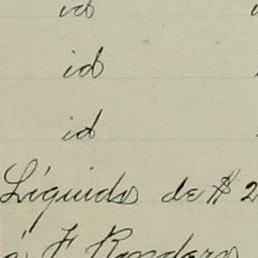 id
id
id
Líquidos de $ 2
á F. Rondero